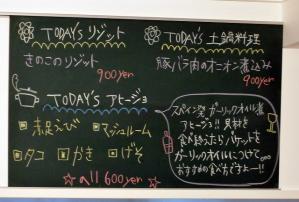 TODAY'S リゾット
きのこのリゾット
900yen
TODAY'S 土鍋料理
豚バラ肉のオニオン煮込み
900yen
TODAY'S アヒージョ
赤足えび
マッシュルーム
タコ
かき
げそ
☆all 600yen☆
スペイン発、ガーリックオイル煮
アヒージョ!! 具材を
食べ終えたらバケットを
ガーリックオイルにつけて。。。
おすすめの食べ方ですよー!!